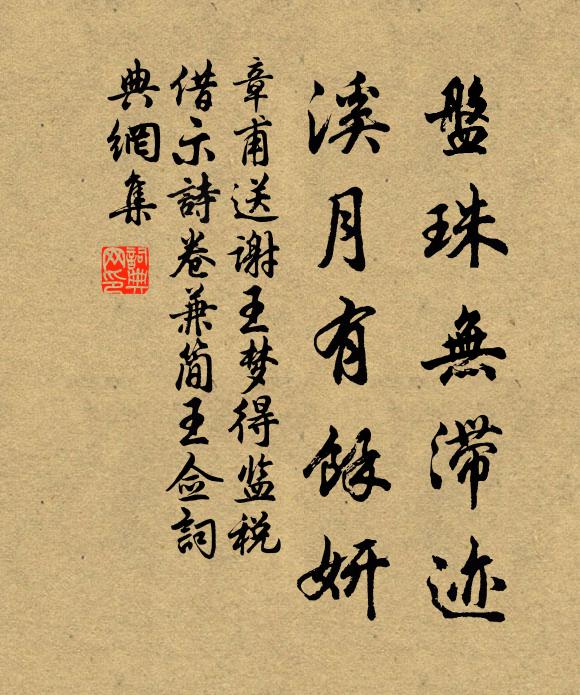 盤珠無滯迹
溪月有餘妍
章甫送謝王梦得监税
借示詩卷兼简王佥詞
典網集
詞典网印